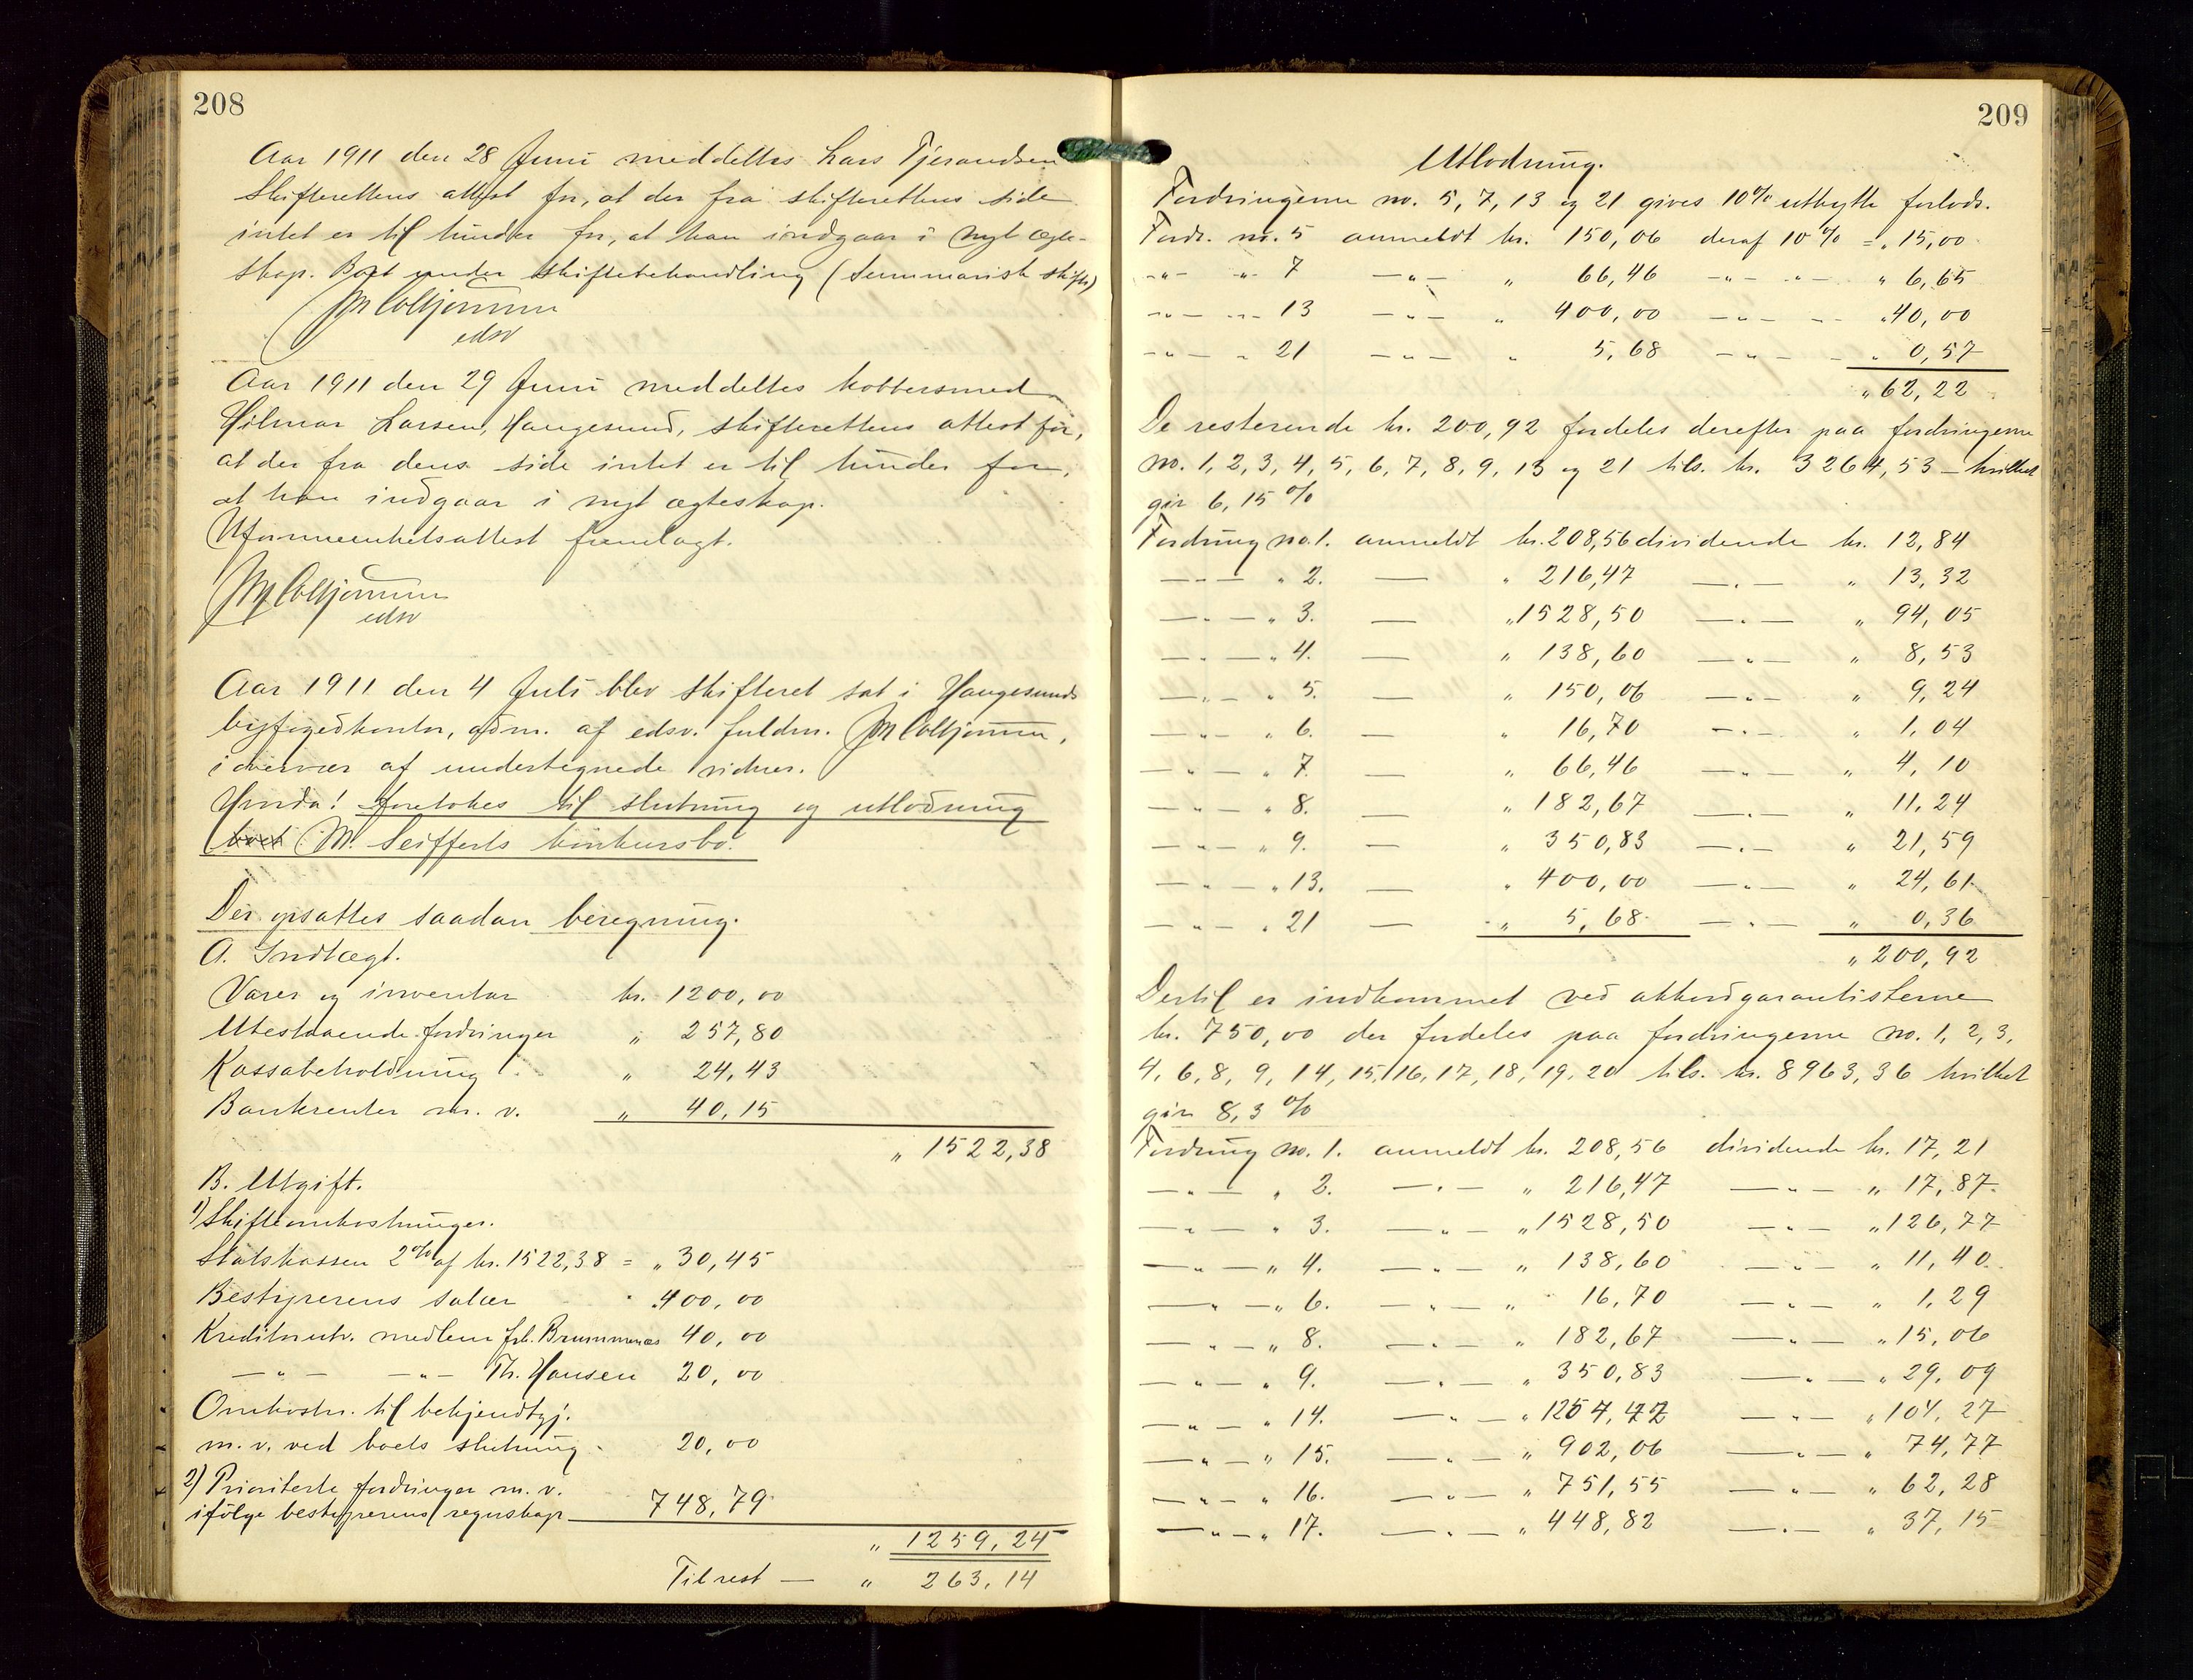 208
Aar 1911 den 28 Juni meddeltes Lars Tjerandsen
skifterettens attest for, at der fra skifterettens side
intet er til hinder for, at han indgaar i nyt ægte-
skap. Boet under skiftebehandling (summarisk skifte)
edsv
Aar 1911 den 29 Juni meddeltes kobbersmed
Hilmar Larsen, Haugesund, skifterettens attest for,
at der fra dens side intet er til hinder for,
at han indgaar i nyt ægteskap.
Uformuenhetsattest fremlagt.
edsv
Aar 1911 den 4 Juli blev skifteret sat i Haugesunds
byfogedkontor, adm. af edsv. fuldm.
i overvær af undertegnede vidner.
Hvorda! foretokes til slutning og utlodning
boet M. Seifferts konkursbo.
Der opsattes saadan beregning.
A. Indtægt.
Varer og inventar kr. 1200,00
Utestaaende fordringer " 257,80
Kassabeholdning " 24,43
Bankrenter m. v. " 40,15
" 1522,38
B. Utgift.
1) Skifteomkostninger.
Statskassen 2% af kr. 1522,38 = " 30,45
Bestyrerens salær " 400,00
Kreditorutv. medlem frk. Brummenæs 40,00
— " — — " — Th. Hansen 20,00
Omkostn. til bekjendtgj.
m. v. ved boets slutning 20,00
2) Prioriterte fordringer m. v.
ifølge bestyrerens regnskap 748,79
" 1259,24
Til rest — " 263,14
209
Utlodning.
Fordringerne no. 5, 7, 13 og 21 gives 10% utbytte forlods.
Fordr. no. 5 anmeldt kr. 150,06 deraf 10% = " 15,00
— " — " 7 — " — " 66,46 — " — " — " 6,65
— " — " 13 — " — " 400,00 — " — " — " 40,00
— " — " 21 — " — " 5,68 — " — " 0,57
" 62,22
De resterende kr. 200,92 fordeles derefter paa fordringerne
no. 1, 2, 3, 4, 5, 6, 7, 8, 9, 13 og 21 tils. kr. 3264,53 — hvilket
gir 6,15 %
Fordring no. 1. anmeldt kr. 208,56 dividende kr. 12,84
— " — " 2. — " 216,47 — " — " 13,32
— " — " 3. — " 1528,50 — " — " 94,05
— " — " 4. — " 138,60 — " — " 8,53
— " — " 5. — " 150,06 — " — " 9,24
— " — " 6. — " 16,70 — " — " 1,04
— " — " 7. — " 66,46 — " — " 4,10
— " — " 8. — " 182,67 — " — " 11,24
— " — " 9. — " 350,83 — " — " 21,59
— " — " 13. — " 400,00 — " — " 24,61
— " — " 21 — " 5,68 — " — " 0,36
" 200,92
Dertil er indkommet ved akkordgarantisterne
kr. 750,00 der fordeles paa fordringerne no. 1, 2, 3,
4, 6, 8, 9, 14, 15, 16, 17, 18, 19, 20 tils. kr. 8963,36 hvilket
gir 8,3 %
Fordring no. 1. anmeldt kr. 208,56 dividende kr. 17,21
— " — " 2. — " — " 216,47 — " — " 17,87
— " — " 3. — " — " 1528,50 — " — " 126,77
— " — " 4. — " — " 138,60 — " — " 11,40
— " — " 6. — " — " 16,70 — " — " 1,29
— " — " 8. — " — " 182,67 — " — " 15,06
— " — " 9. — " — " 350,83 — " — " 29,09
— " — " 14. — " — " — " — " 104,27
— " — " 15. — " — " 902,06 — " — " 74,77
— " — " 16. — " — " 751,55 — " — " 62,28
— " — " 17. — " — " 448,82 — " — " 37,15